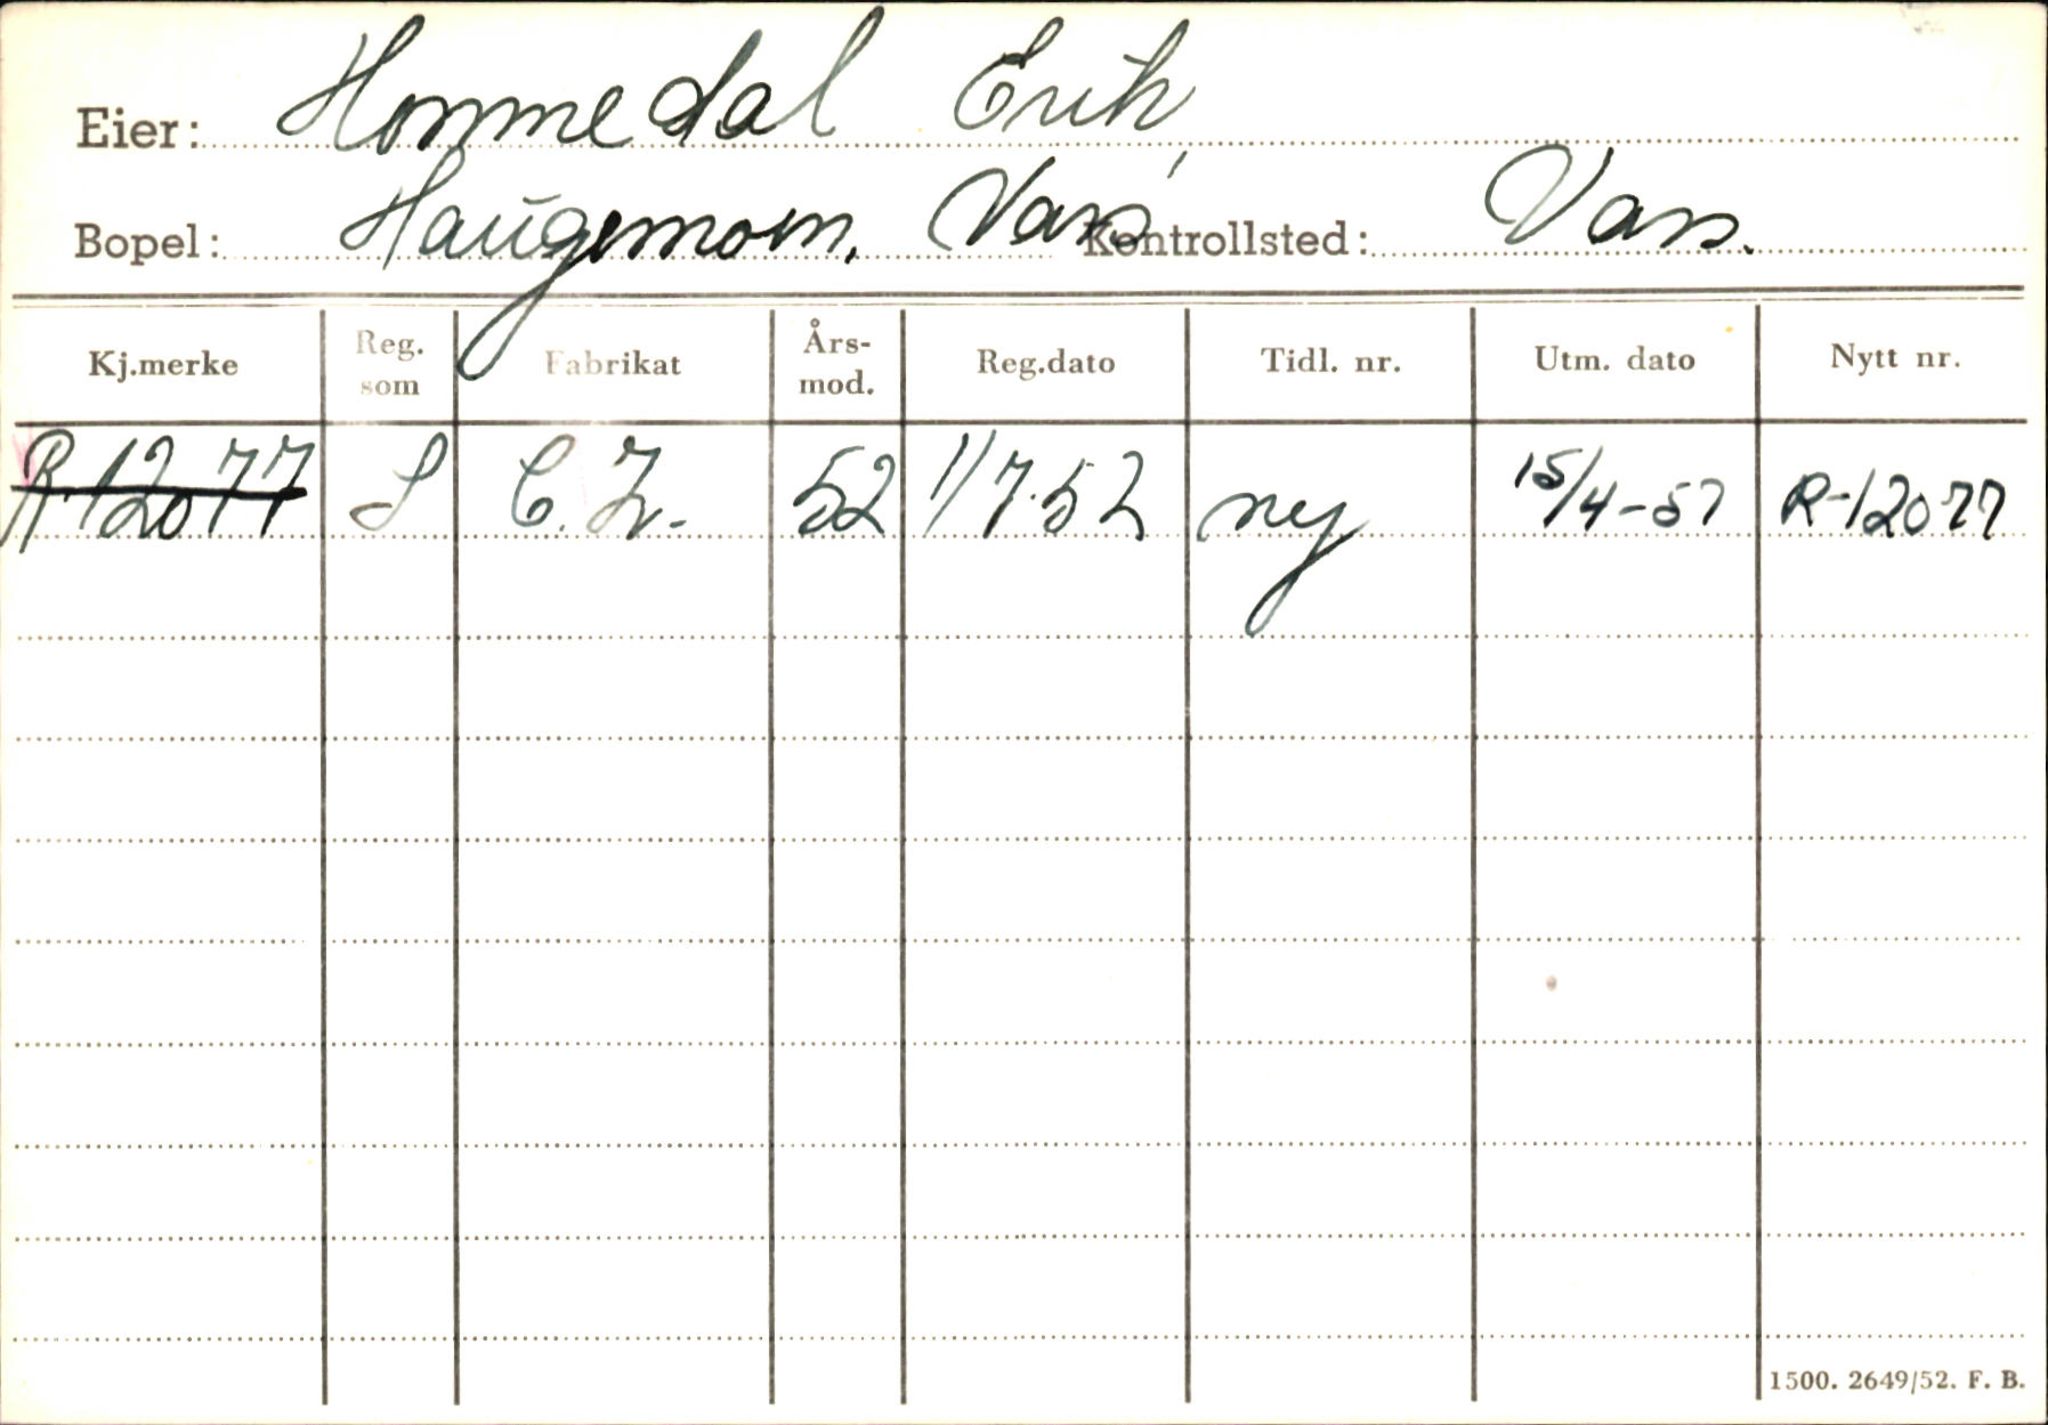 Eier: Hommedal Erik
Bopel: Haugemoen, Vass Kontrollsted: Vass.
Kj.merke Reg. som Fabrikat Års-mod. Reg.dato Tidl. nr. Utm. dato Nytt nr.
R-12077 S C.Z.- 52 1/7-52 ny 15/4-57 R-12077
1500. 2649/52. F. B.